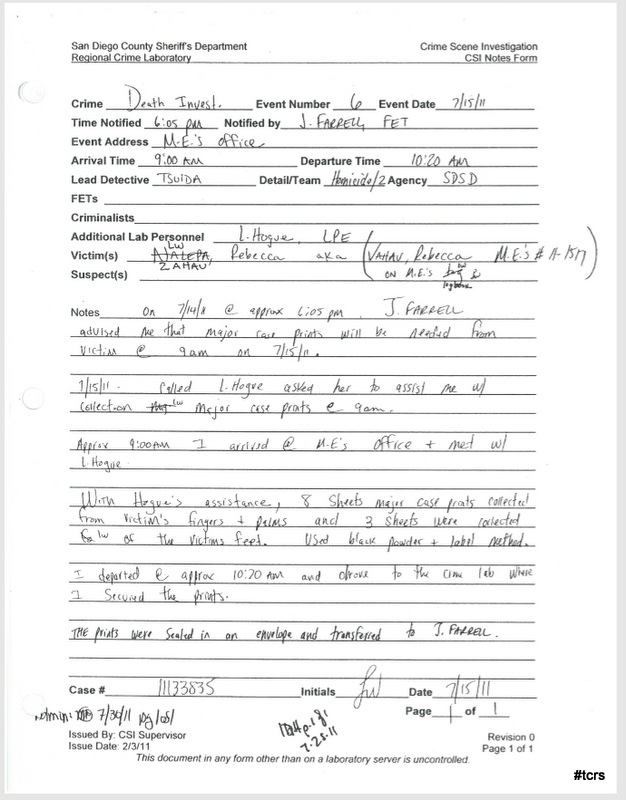 San Diego County Sheriff's Department Crime Scene Investigation
Regional Crime Laboratory CSI Notes Form
Crime Death Invest. Event Number 6 Event Date 7/15/11
Time Notified 6:05 pm Notified by J. FARRELL, FET
Event Address M.E.'s office
Arrival Time 9:00 AM Departure Time 10:20 AM
Lead Detective TSUIDA Detail/Team Homicide/2 Agency SDSD
FETs
Criminalists
Additional Lab Personnel L. Hogue, LPE
Victim(s) NALEPA LW ZAHAU, Rebecca aka (VAHAU, Rebecca M.E.'s # 11-1517)
Suspect(s) ON M.E.'s logbook
Notes On 7/14/11 @ approx 6:05 pm. J. FARRELL
advised me that major case prints will be needed from
victim @ 9am on 7/15/11.
7/15/11. Called L. Hogue asked her to assist me w/
collection LW major case prints @ 9am.
Approx 9:00AM I arrived @ M.E.'s office + met w/
L. Hogue
With Hogue's assistance, 8 sheets major case prints collected
from victim's fingers + palms and 3 sheets were collected
LW of the victims feet. Used black powder + label method.
I departed @ approx 10:20 AM and drove to the crime lab where
I secured the prints.
THE prints were sealed in an envelope and transferred to J. FARRELL.
Case # 11133835 Initials LW Date 7/15/11
Admin: 7/30/11 Page 1 of 1
7-25-11
Issued By: CSI Supervisor Revision 0
Issue Date: 2/3/11 Page 1 of 1
This document in any form other than on a laboratory server is uncontrolled.
#tcrs